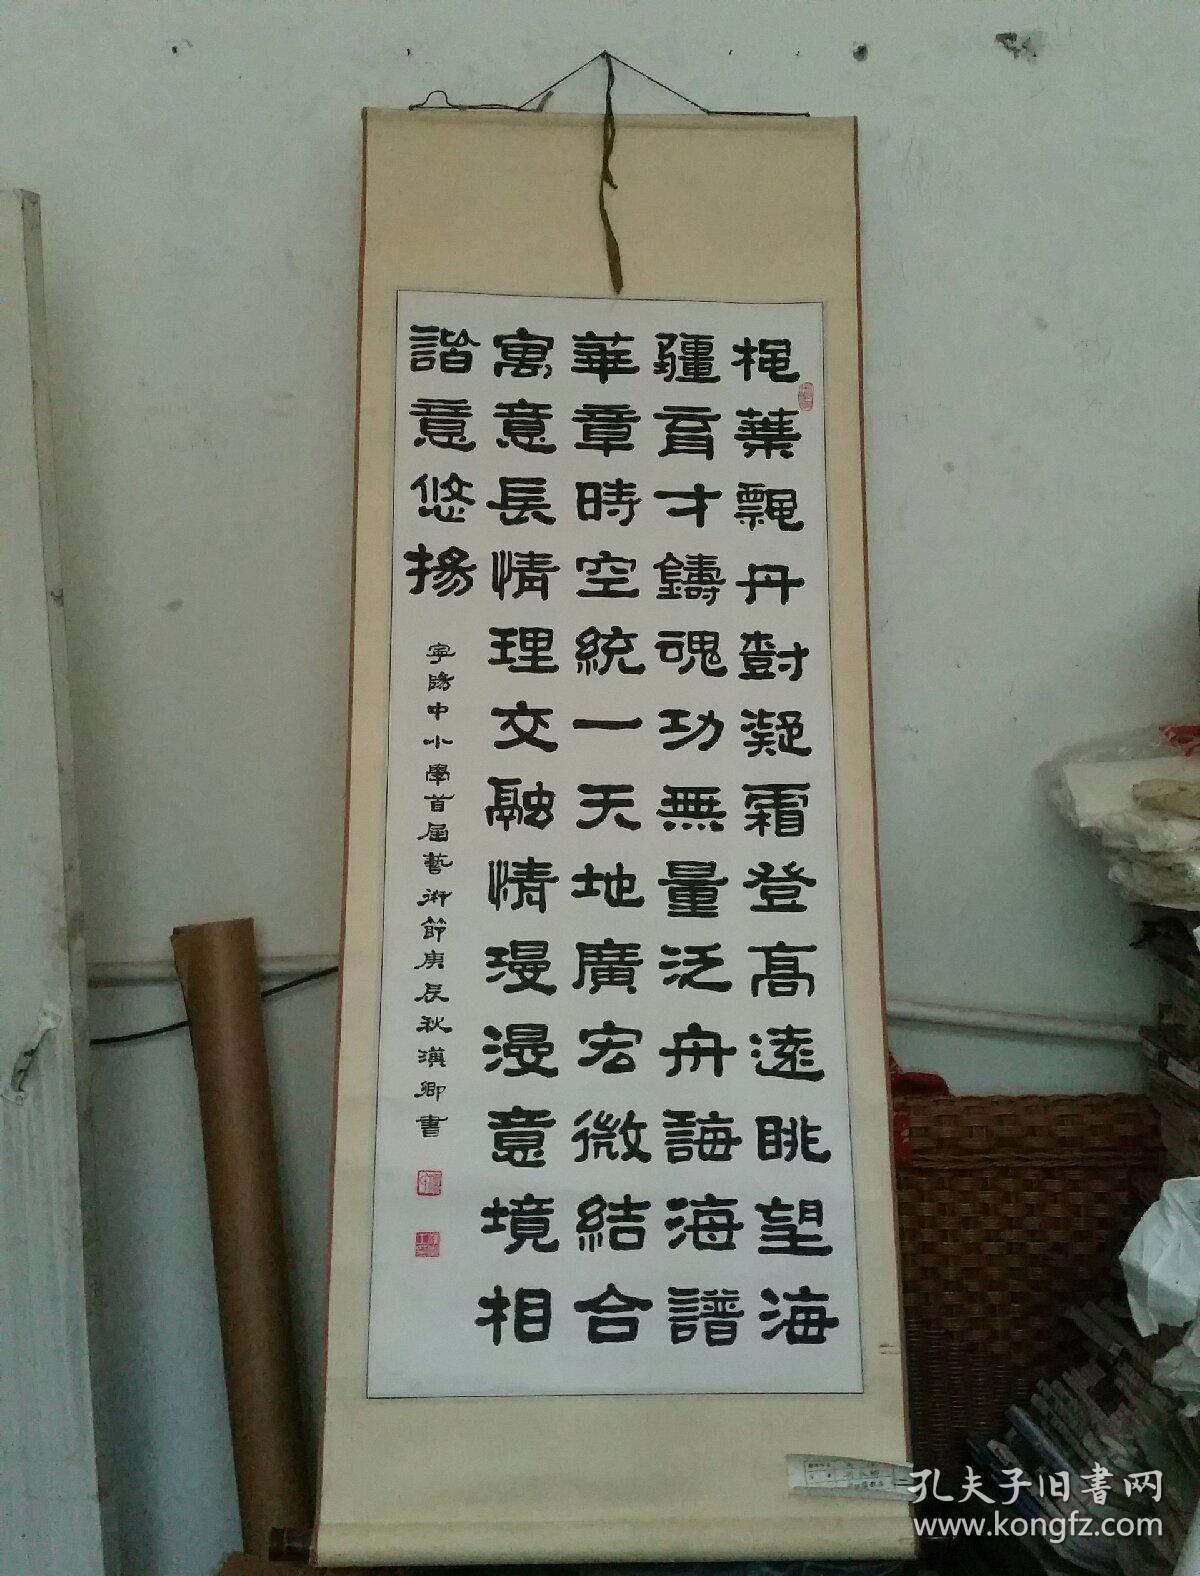 楓葉飄丹對凝霜登高遠眺望海
疆育才鑄魂功無量泛舟誨海譜
華章時空統一天地廣宏微結合
寓意長情理交融情漫漫意境相
諧意悠揚
寧陽中小學首屆藝術節庚辰秋漢卿書
孔夫子旧書网
www.kongfz.com